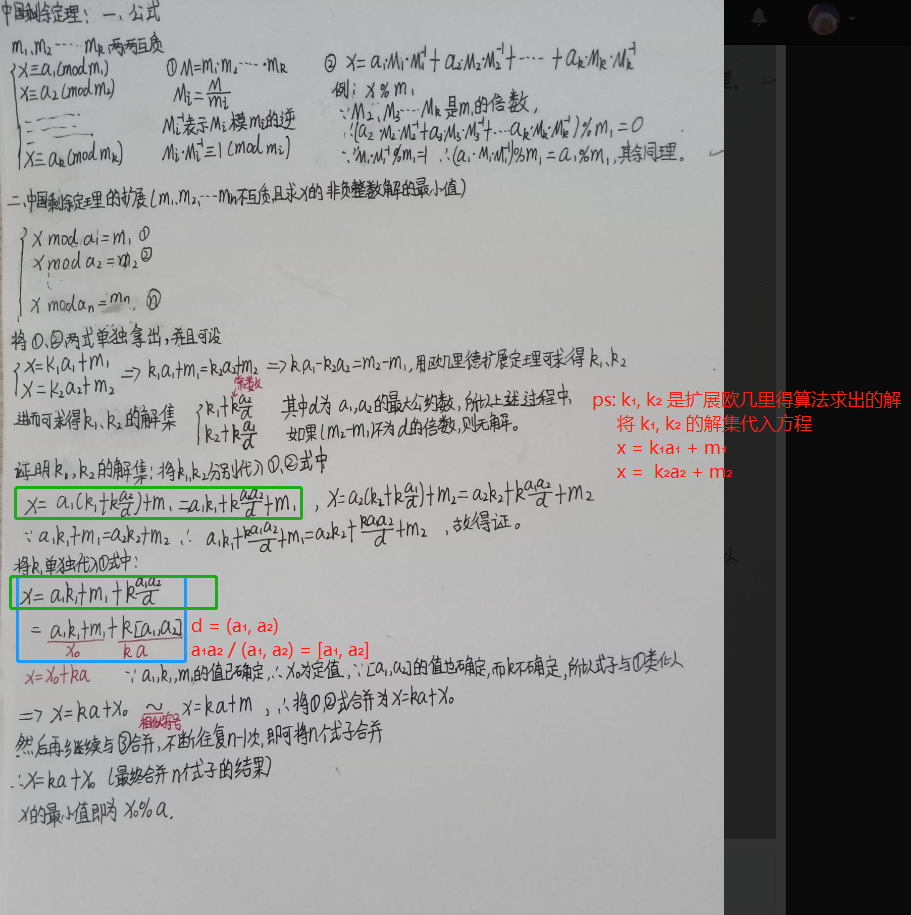 中国剩余定理：一、公式
m₁,m₂……mₖ两两互质
x≡a₁(mod m₁) ① M=m₁·m₂……mₖ ② x=a₁·M₁·M₁⁻¹+a₂·M₂·M₂⁻¹+……+aₖ·Mₖ·Mₖ⁻¹
x≡a₂(mod m₂) Mᵢ=M/mᵢ 例：x%m₁
Mᵢ⁻¹表示Mᵢ模mᵢ的逆 ∵M₂、M₃…Mₖ是m₁的倍数，
∴(a₂·M₂·M₂⁻¹+a₃·M₃·M₃⁻¹+…aₖ·Mₖ·Mₖ⁻¹)%m₁=0
x≡aₖ(mod mₖ) Mᵢ·Mᵢ⁻¹≡1(mod mᵢ) ∵M₁·M₁⁻¹%m₁=1 ∴(a₁·M₁·M₁⁻¹)%m₁=a₁%m₁,其余同理。
二、中国剩余定理的扩展(m₁、m₂、…mₙ不互质,且求x的非负整数解的最小值)
x mod a₁=m₁ ①
x mod a₂=m₂ ②
⋮
x mod aₙ=mₙ ⓝ
将①、②两式单独拿出,并且可设
x=k₁a₁+m₁
x=k₂a₂+m₂ ⇒k₁a₁+m₁=k₂a₂+m₂ ⇒k₁a₁-k₂a₂=m₂-m₁,用欧几里德扩展定理可求得k₁、k₂
常数
进而可求得k₁、k₂的解集 k₁+k a₂/d 其中d为a₁,a₂的最大公约数,所以上述过程中,
k₂+k a₁/d 如果(m₂-m₁)不为d的倍数,则无解。
ps: k₁, k₂ 是扩展欧几里得算法求出的解
将 k₁, k₂ 的解集代入方程
x = k₁a₁ + m₁
x = k₂a₂ + m₂
证明k₁、k₂的解集:将k₁,k₂分别代入①、②式中
x=a₁(k₁+k a₂/d)+m₁=a₁k₁+k a₁a₂/d+m₁ , x=a₂(k₂+k a₁/d)+m₂=a₂k₂+k a₁a₂/d+m₂
∵a₁k₁+m₁=a₂k₂+m₂ ∴ a₁k₁+ka₁a₂/d+m₁=a₂k₂+ka₁a₂/d+m₂ ,故得证。
将k₁单独代入①式中:
x=a₁k₁+m₁+k a₁a₂/d
=a₁k₁+m₁+k[a₁,a₂] d = (a₁, a₂)
x₀ ka a₁a₂ / (a₁, a₂) = [a₁, a₂]
x=x₀+ka ∵a₁,k₁,m₁的值已确定,∴x₀为定值,∵[a₁,a₂]的值也确定,而k不确定,所以式子与①类似
⇒x=ka+x₀ ~ x=ka+m ,∴将①,②式合并为x=ka+x₀
相似符号
然后再继续与③合并,不断往复n-1次,即可将n个式子合并
∴x=ka+x₀ (最终合并n个式子的结果)
x的最小值即为 x₀%a.